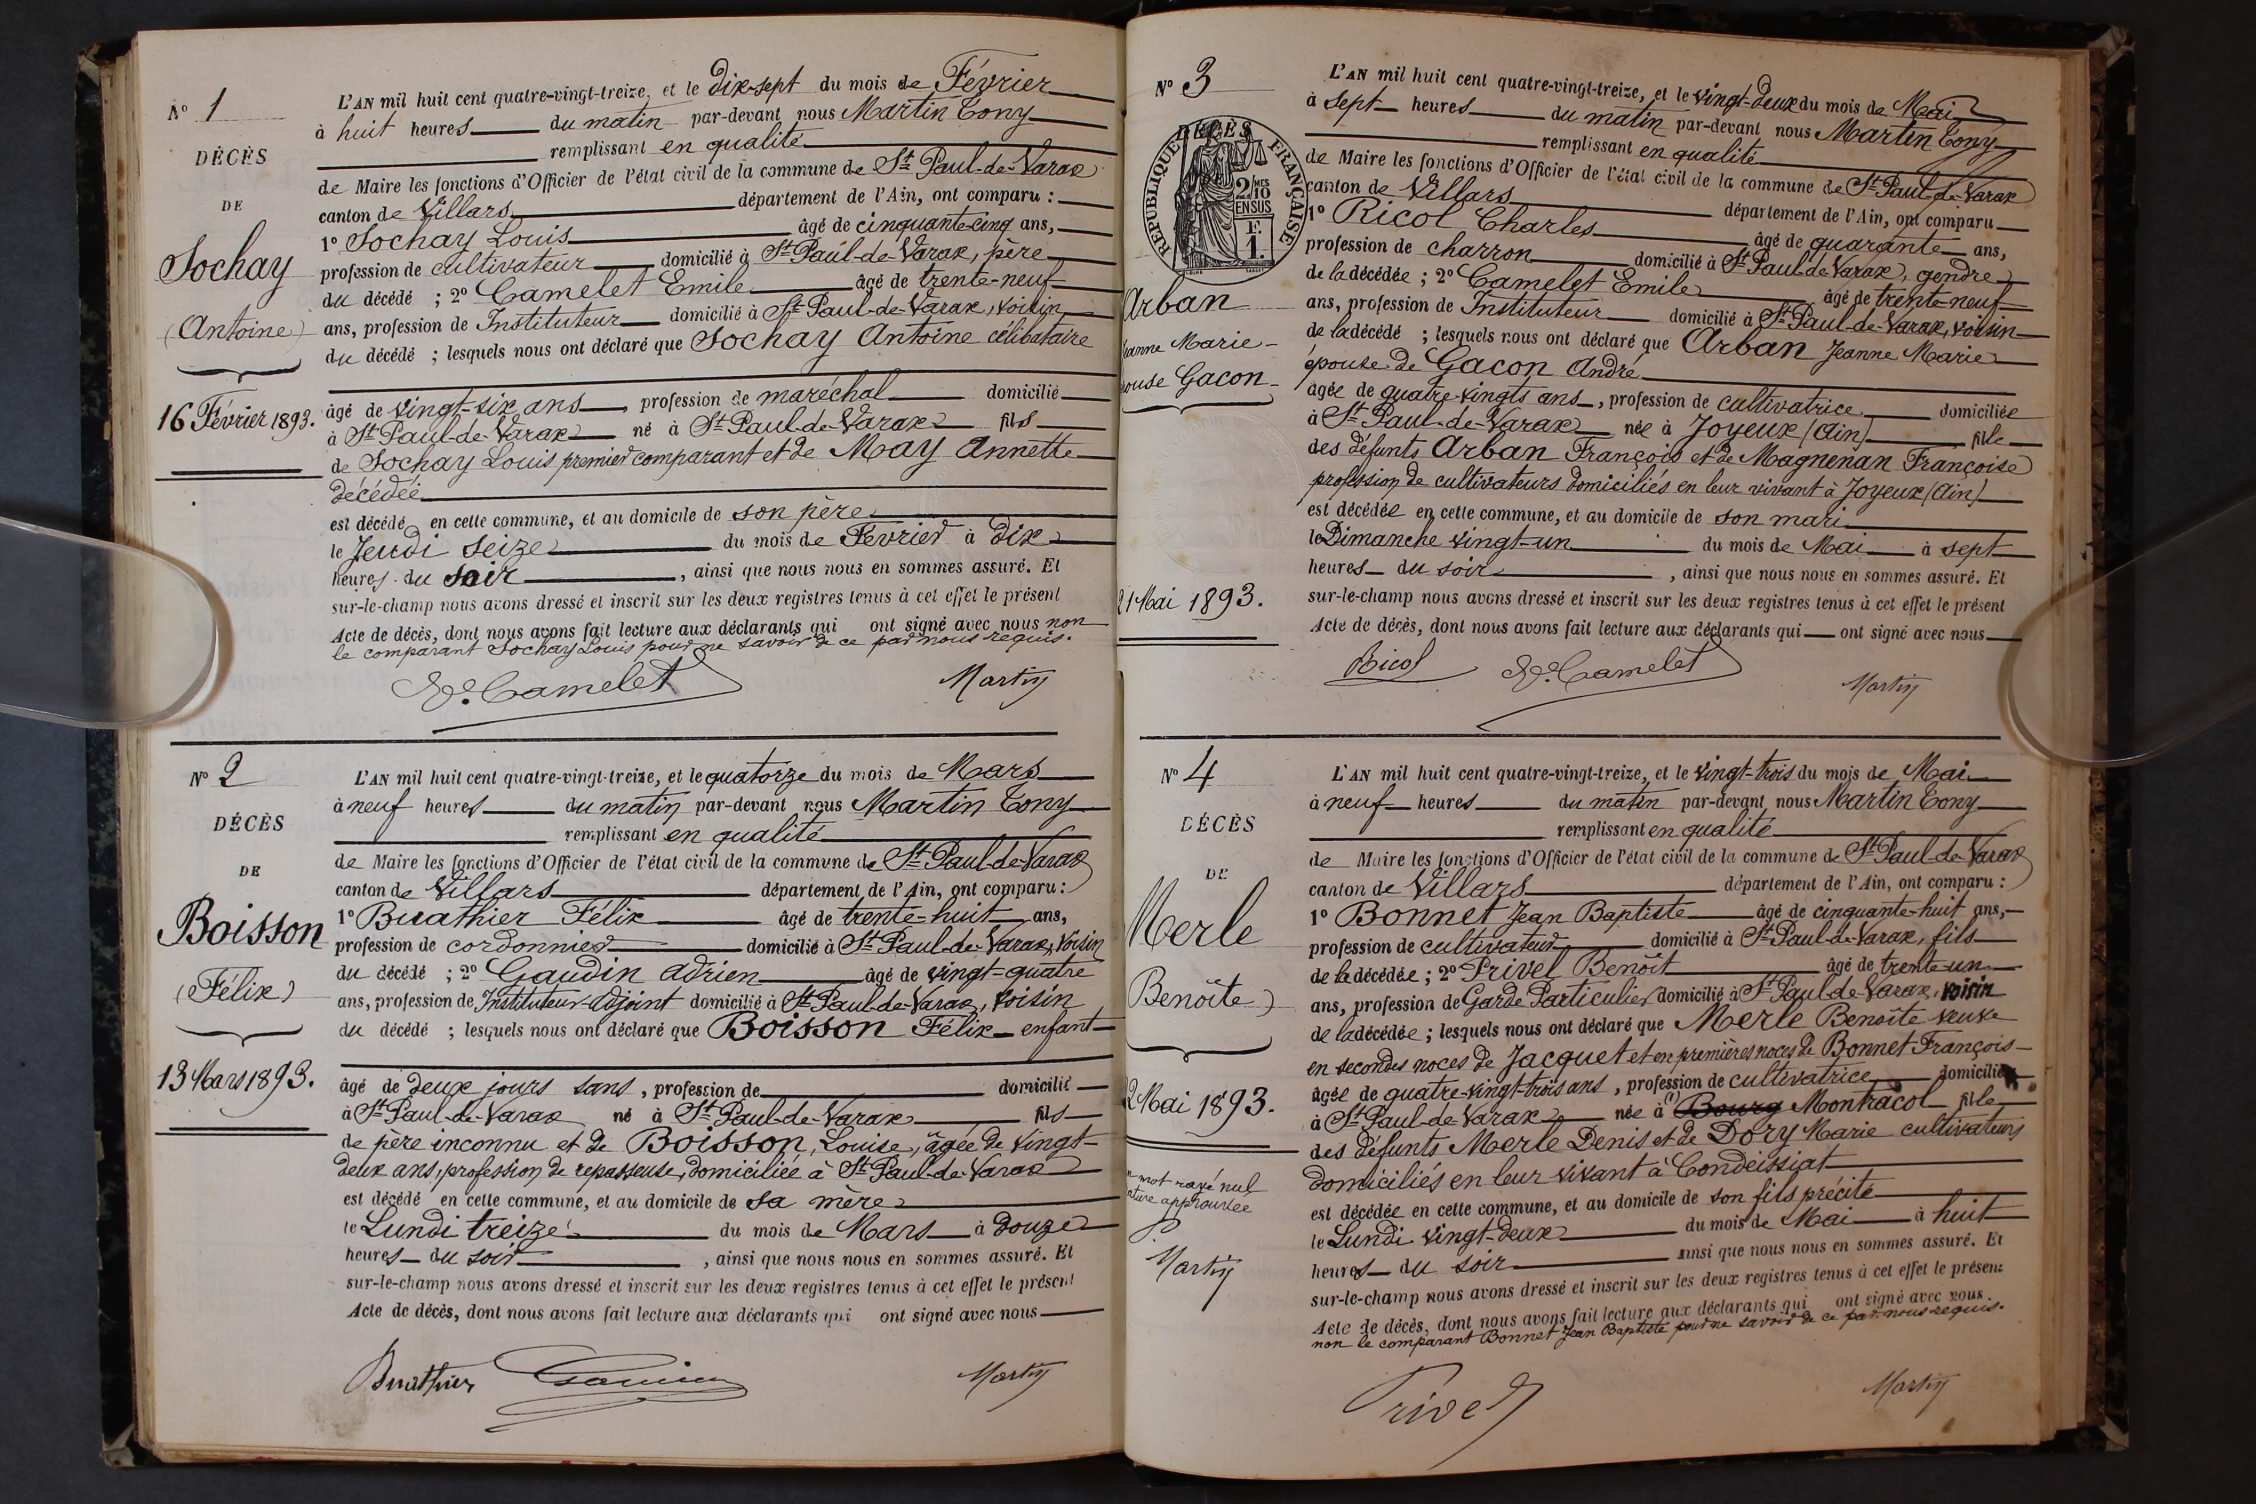 N° 1
DÉCÈS
DE
Sochay
(Antoine)
16 Février 1893.
L'AN mil huit cent quatre-vingt-treize, et le dix-sept du mois de Février
à huit heures du matin par-devant nous Martin Tony
remplissant en qualité
de Maire les fonctions d'Officier de l'état civil de la commune de St Paul-de-Varax
canton de Villars département de l'Ain, ont comparu :
1° Sochay Louis âgé de cinquante-cinq ans,
profession de cultivateur domicilié à St Paul-de-Varax, père
du décédé ; 2° Camelet Emile âgé de trente-neuf
ans, profession de Instituteur domicilié à St Paul-de-Varax, voisin
du décédé ; lesquels nous ont déclaré que Sochay Antoine célibataire
âgé de vingt-six ans, profession de maréchal domicilié
à St Paul-de-Varax né à St Paul-de-Varax fils
de Sochay Louis premier comparant et de May Annette
décédée
est décédé en cette commune, et au domicile de son père
le Jeudi seize du mois de Février à dix
heures du soir, ainsi que nous nous en sommes assuré. Et
sur-le-champ nous avons dressé et inscrit sur les deux registres tenus à cet effet le présent
Acte de décès, dont nous avons fait lecture aux déclarants qui ont signé avec nous non
le comparant Sochay Louis pour ne savoir de ce par nous requis.
Camelet Martin
N° 2
DÉCÈS
DE
Boisson
(Félix)
13 Mars 1893.
L'AN mil huit cent quatre-vingt-treize, et le quatorze du mois de Mars
à neuf heures du matin par-devant nous Martin Tony
remplissant en qualité
de Maire les fonctions d'Officier de l'état civil de la commune de St Paul-de-Varax
canton de Villars département de l'Ain, ont comparu :
1° Buathier Félix âgé de trente-huit ans,
profession de cordonnier domicilié à St Paul-de-Varax, voisin
du décédé ; 2° Gaudin Adrien âgé de vingt-quatre
ans, profession de Instituteur-Adjoint domicilié à St Paul-de-Varax, voisin
du décédé ; lesquels nous ont déclaré que Boisson Félix enfant
âgé de deux jours sans, profession de domicilié
à St Paul-de-Varax né à St Paul-de-Varax fils
de père inconnu et de Boisson, Louise, âgée de vingt-
deux ans, profession de repasseuse, domiciliée à St Paul-de-Varax
est décédé en cette commune, et au domicile de sa mère
le Lundi treize du mois de Mars à douze
heures du soir, ainsi que nous nous en sommes assuré. Et
sur-le-champ nous avons dressé et inscrit sur les deux registres tenus à cet effet le présent
Acte de décès, dont nous avons fait lecture aux déclarants qui ont signé avec nous
Buathier Martin
N° 3
DÉCÈS
RÉPUBLIQUE FRANÇAISE
2/10 MES
EN SUS
F.
1.
Arban
Jeanne Marie
épouse Gacon
21 Mai 1893.
L'AN mil huit cent quatre-vingt-treize, et le vingt-deux du mois de Mai
à sept heures du matin par-devant nous Martin Tony
remplissant en qualité
de Maire les fonctions d'Officier de l'état civil de la commune de St Paul-de-Varax
canton de Villars département de l'Ain, ont comparu
1° Ricol Charles âgé de quarante ans,
profession de charron domicilié à St Paul-de-Varax, gendre
de la décédée ; 2° Camelet Emile âgé de trente-neuf
ans, profession de Instituteur domicilié à St Paul-de-Varax, voisin
de la décédé ; lesquels nous ont déclaré que Arban Jeanne Marie
épouse de Gacon André
agée de quatre-vingts ans, profession de cultivatrice domiciliée
à St Paul-de-Varax née à Joyeux (Ain) fille
des défunts Arban François et de Magnenan Françoise
profession de cultivateurs domiciliés en leur vivant à Joyeux (Ain)
est décédée en cette commune, et au domicile de son mari
le Dimanche vingt-un du mois de Mai à sept
heures du soir, ainsi que nous nous en sommes assuré. Et
sur-le-champ nous avons dressé et inscrit sur les deux registres tenus à cet effet le présent
Acte de décès, dont nous avons fait lecture aux déclarants qui ont signé avec nous
Ricol Camelet Martin
N° 4
DÉCÈS
DE
Merle
Benoîte)
22 Mai 1893.
mot rayé nul
approuvée
Martin
L'AN mil huit cent quatre-vingt-treize, et le vingt-trois du mois de Mai
à neuf heures du matin par-devant nous Martin Tony
remplissant en qualité
de Maire les fonctions d'Officier de l'état civil de la commune de St Paul-de-Varax
canton de Villars département de l'Ain, ont comparu :
1° Bonnet Jean Baptiste âgé de cinquante-huit ans,
profession de cultivateur domicilié à St Paul-de-Varax, fils
de la décédée ; 2° Privel Benoît âgé de trente-un
ans, profession de Garde Particulier domicilié à St Paul-de-Varax, voisin
de la décédée ; lesquels nous ont déclaré que Merle Benoîte veuve
en secondes noces de Jacquet et en premières noces de Bonnet François
âgée de quatre-vingt-trois ans, profession de cultivatrice domiciliée
à St Paul-de-Varax née à (1) Bourg Montracol fille
des défunts Merle Denis et de Dory Marie cultivateurs
domiciliés en leur vivant à Condeissiat
est décédée en cette commune, et au domicile de son fils précité
le Lundi vingt-deux du mois de Mai à huit
heures du soir ainsi que nous nous en sommes assuré. Et
sur-le-champ nous avons dressé et inscrit sur les deux registres tenus à cet effet le présent
Acte de décès, dont nous avons fait lecture aux déclarants qui ont signé avec nous.
non le comparant Bonnet Jean Baptiste pour ne savoir de ce par nous requis.
Privel Martin